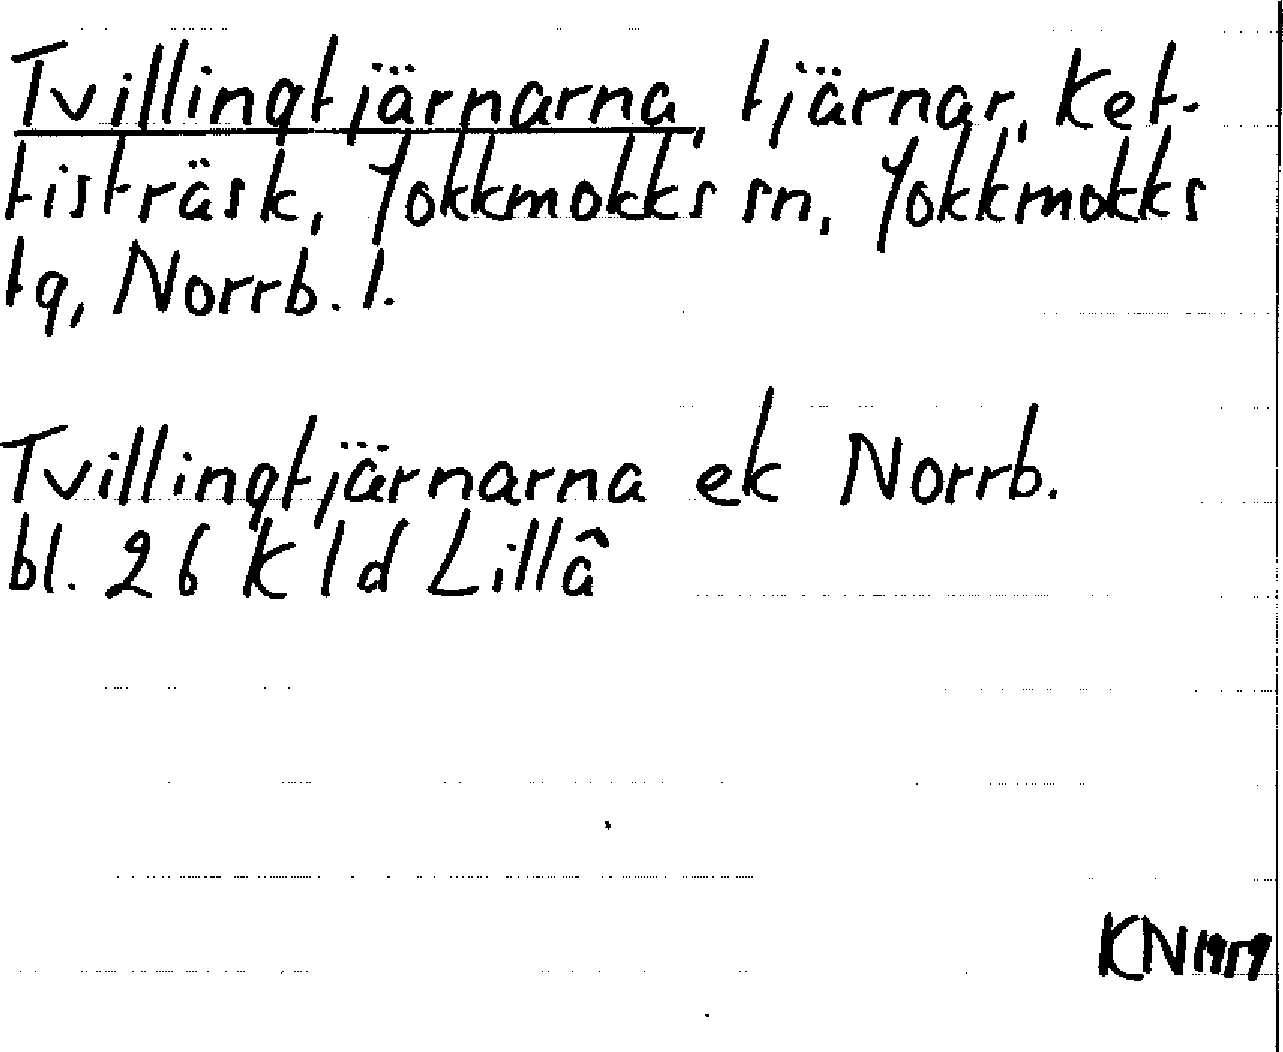 Tvillingtjärnarna, tjärnar, Ket-
tisträsk, Jokkmokks sn, Jokkmokks
tg, Norrb. l.
Tvillingtjärnarna ek Norrb.
bl. 26 K 1d Lillå
KN 1959